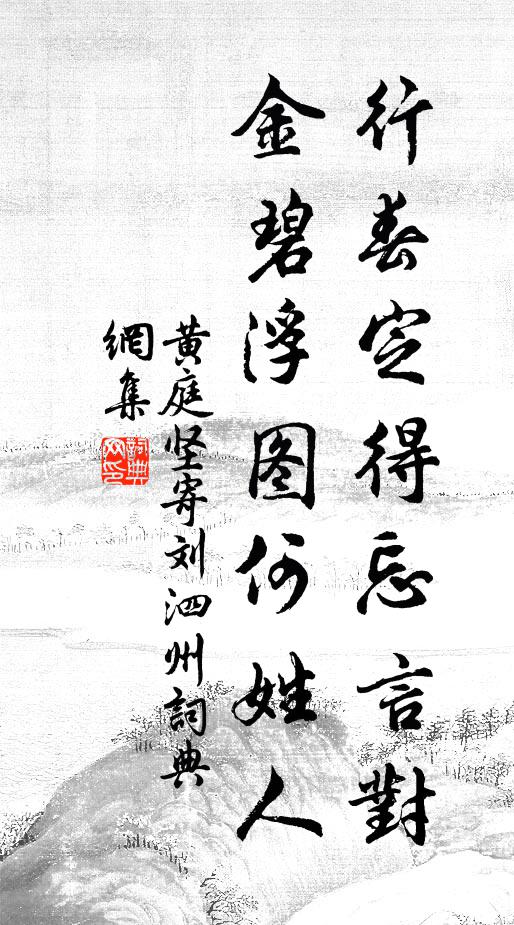 行春定得忘言對
金碧浮图何姓人
黄庭坚寄刘泗州詞典
網集
詞典网印